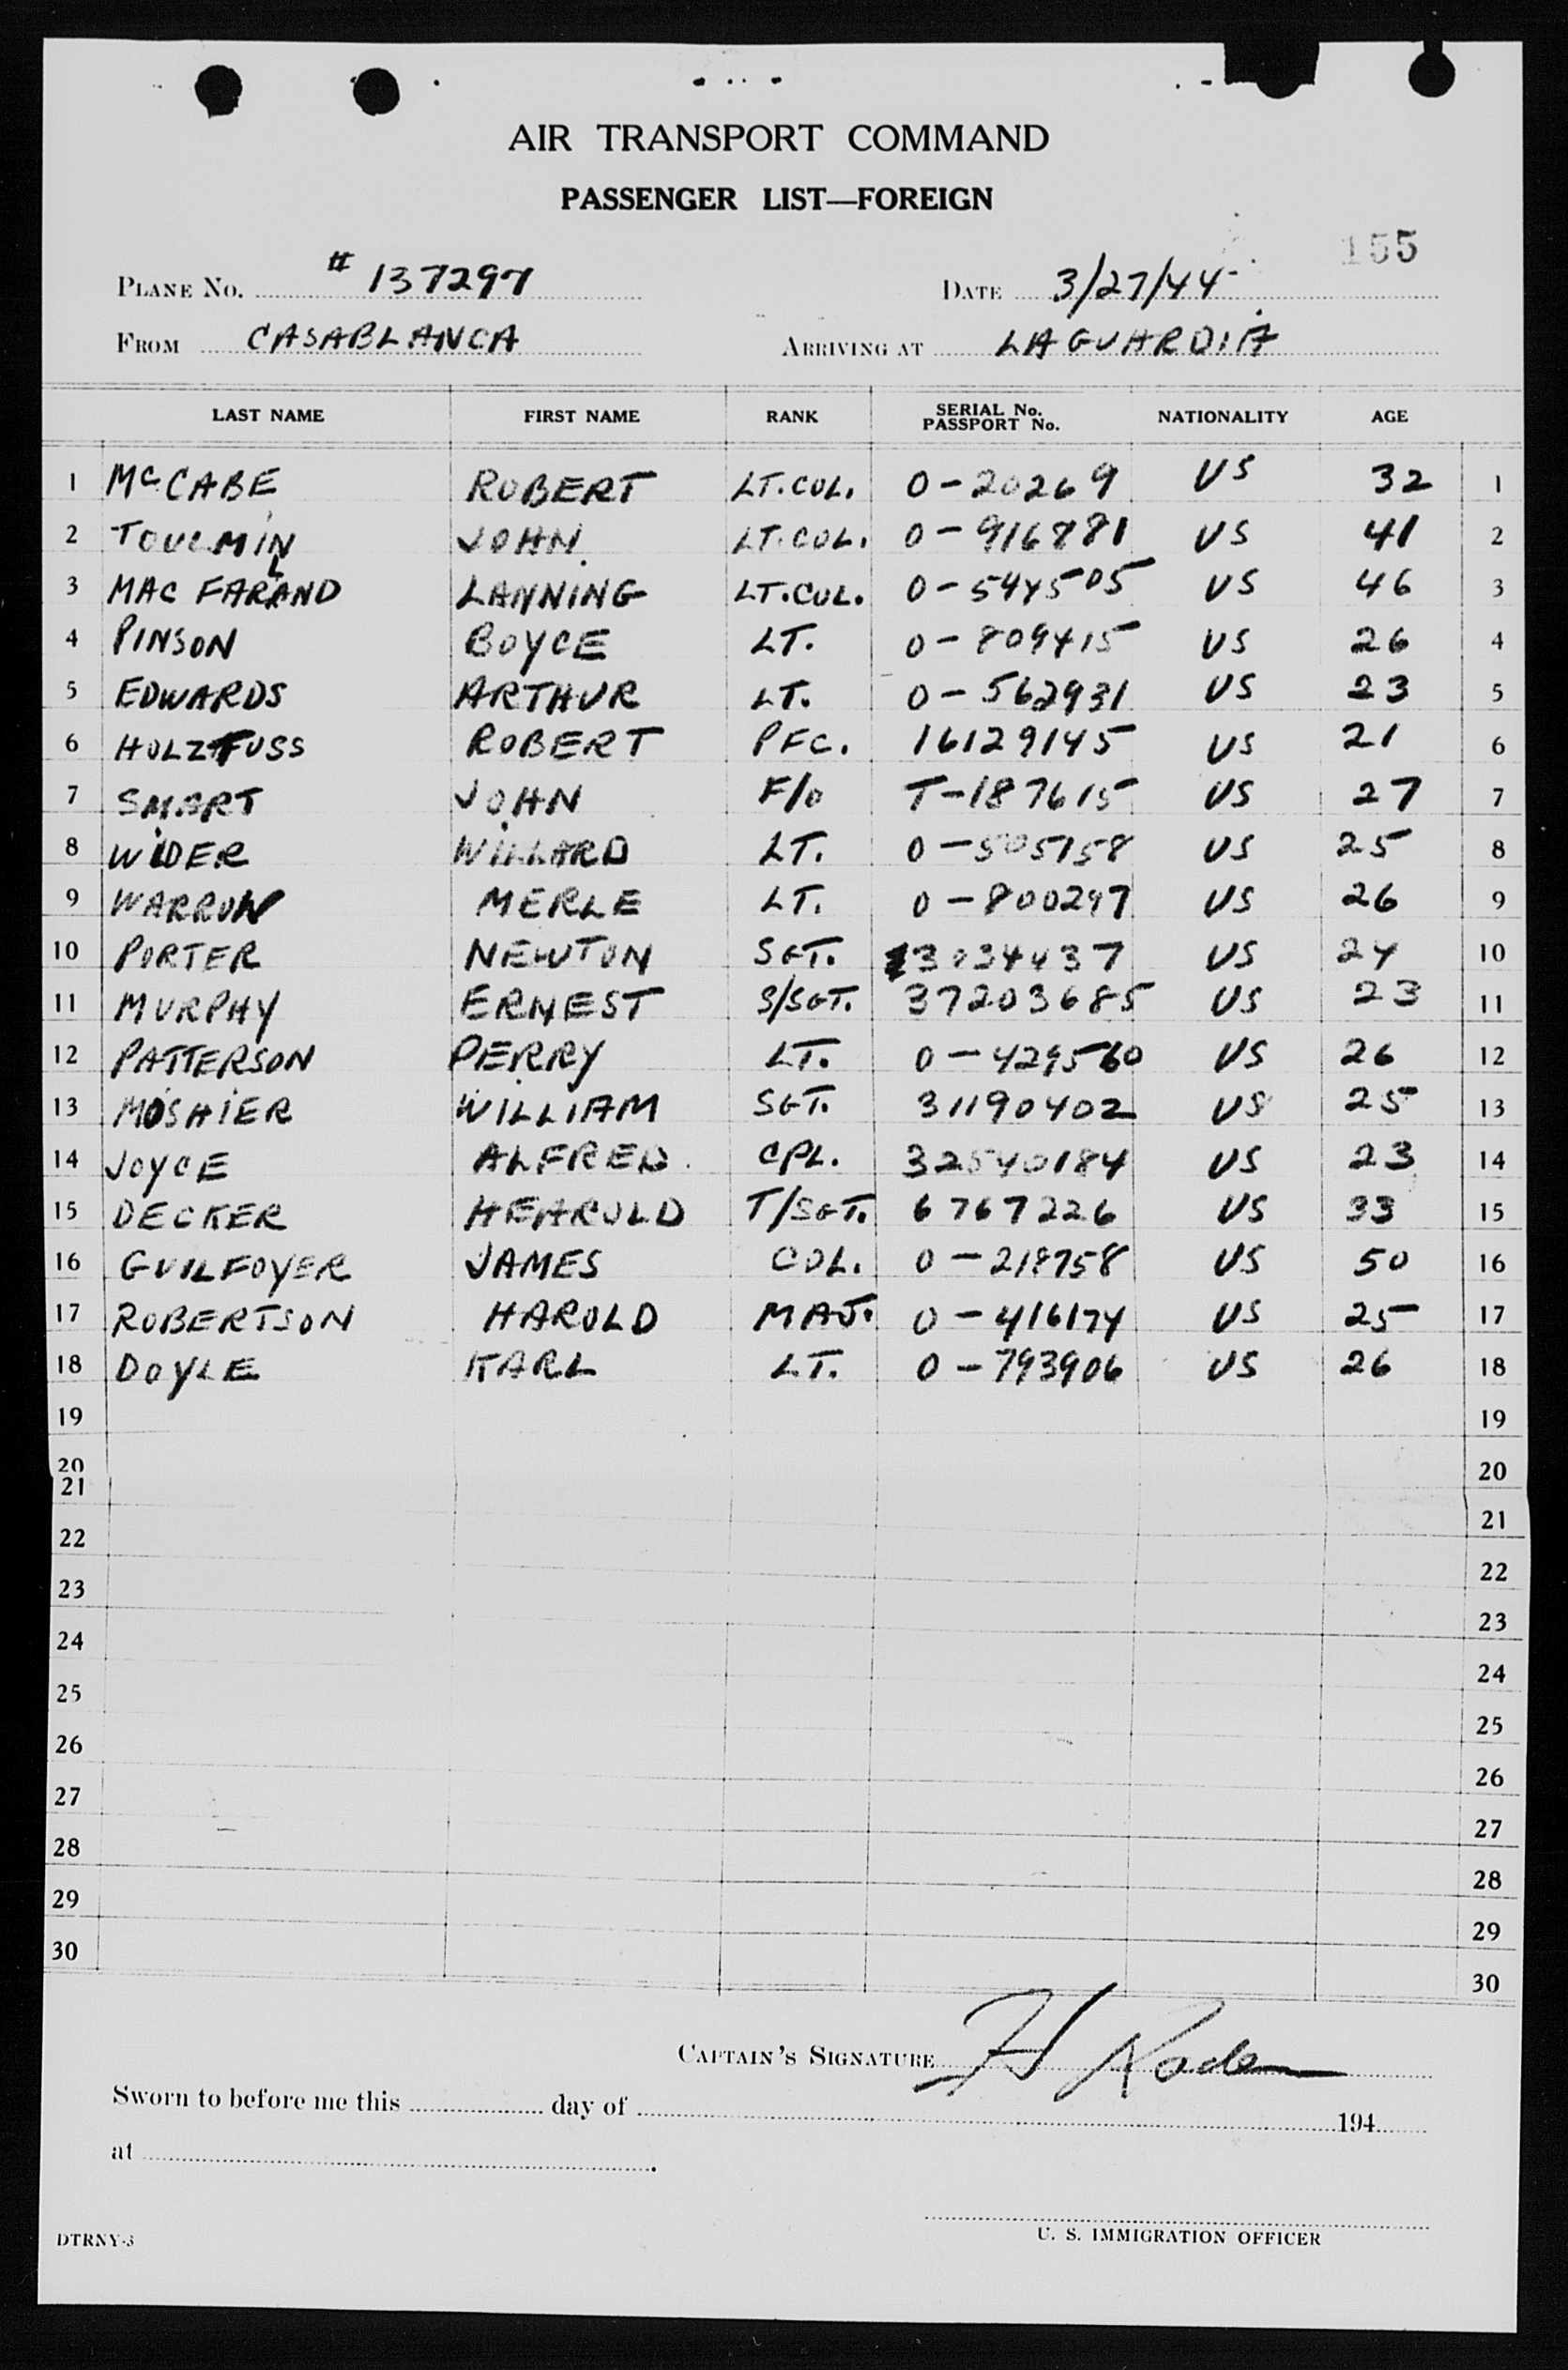 AIR TRANSPORT COMMAND
PASSENGER LIST—FOREIGN
155
PLANE No. # 137297 DATE 3/27/44
FROM CASABLANCA ARRIVING AT LAGUARDIA
LAST NAME FIRST NAME RANK SERIAL No. PASSPORT No. NATIONALITY AGE
1 McCABE ROBERT LT.COL. 0-20269 US 32 1
2 TOULMIN JOHN LT.COL. 0-916881 US 41 2
3 MAC FARLAND LANNING LT.COL. 0-544505 US 46 3
4 PINSON BOYCE LT. 0-809415 US 26 4
5 EDWARDS ARTHUR LT. 0-562931 US 23 5
6 HOLZFUSS ROBERT PFC. 16129145 US 21 6
7 SMART JOHN F/O T-187615 US 27 7
8 WIDER WILLARD LT. 0-505158 US 25 8
9 WARROW MERLE LT. 0-800297 US 26 9
10 PORTER NEWTON SGT. 13034437 US 24 10
11 MURPHY ERNEST S/SGT. 37203685 US 23 11
12 PATTERSON PERRY LT. 0-429560 US 26 12
13 MOSHIER WILLIAM SGT. 31190402 US 25 13
14 JOYCE ALFRED CPL. 32540184 US 23 14
15 DECKER HEAROLD T/SGT. 6767226 US 33 15
16 GUILFOYER JAMES COL. 0-218758 US 50 16
17 ROBERTSON HAROLD MAJ. 0-416174 US 25 17
18 DOYLE KARL LT. 0-793906 US 26 18
19 19
20 20
21 21
22 22
23 23
24 24
25 25
26 26
27 27
28 28
29 29
30 30
CAPTAIN'S SIGNATURE H
Sworn to before me this day of 194
at .
U. S. IMMIGRATION OFFICER
DTRNY-3